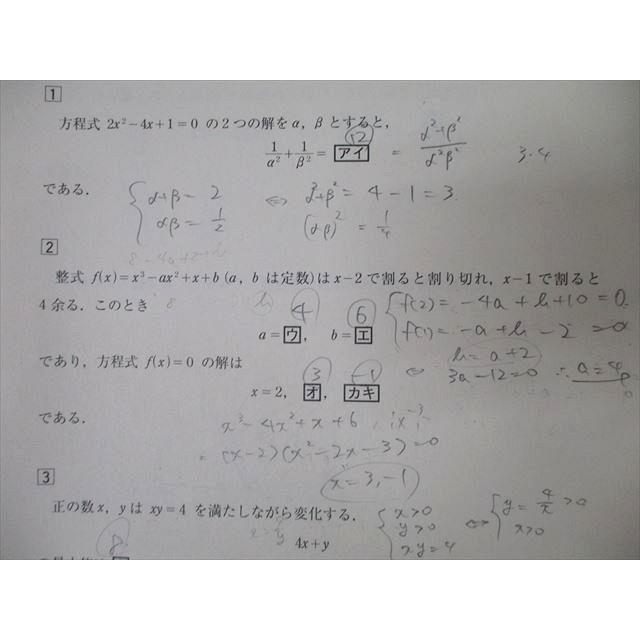 1
方程式 2x²−4x+1=0 の2つの解をα, βとすると,
12
1/α² + 1/β² = アイ = α²+β² / α²β² 3・4
である.
{ α+β = 2
αβ = 1/2
⇔ α²+β² = 4 − 1 = 3.
(αβ)² = 1/4
2
整式 f(x)=x³−ax²+x+b (a, b は定数)は x−2 で割ると割り切れ, x−1 で割ると
4余る. このとき
4 6
a=ウ, b=エ
{ f(2) = −4a + b + 10 = 0.
f(1) = −a + b − 2 = 0
であり, 方程式 f(x)=0 の解は
⇔ b = a + 2
3a − 12 = 0 ∴ a = 4
3 −1
x=2, オ, カキ
である.
x³ − 4x² + x + 6
= (x−2)(x²−2x−3) = 0
x = 3, −1
3
正の数 x, y は xy=4 を満たしながら変化する.
{ x>0
y>0
xy = 4
⇔ { y = 4/x > 0
x>0
8
4x+y